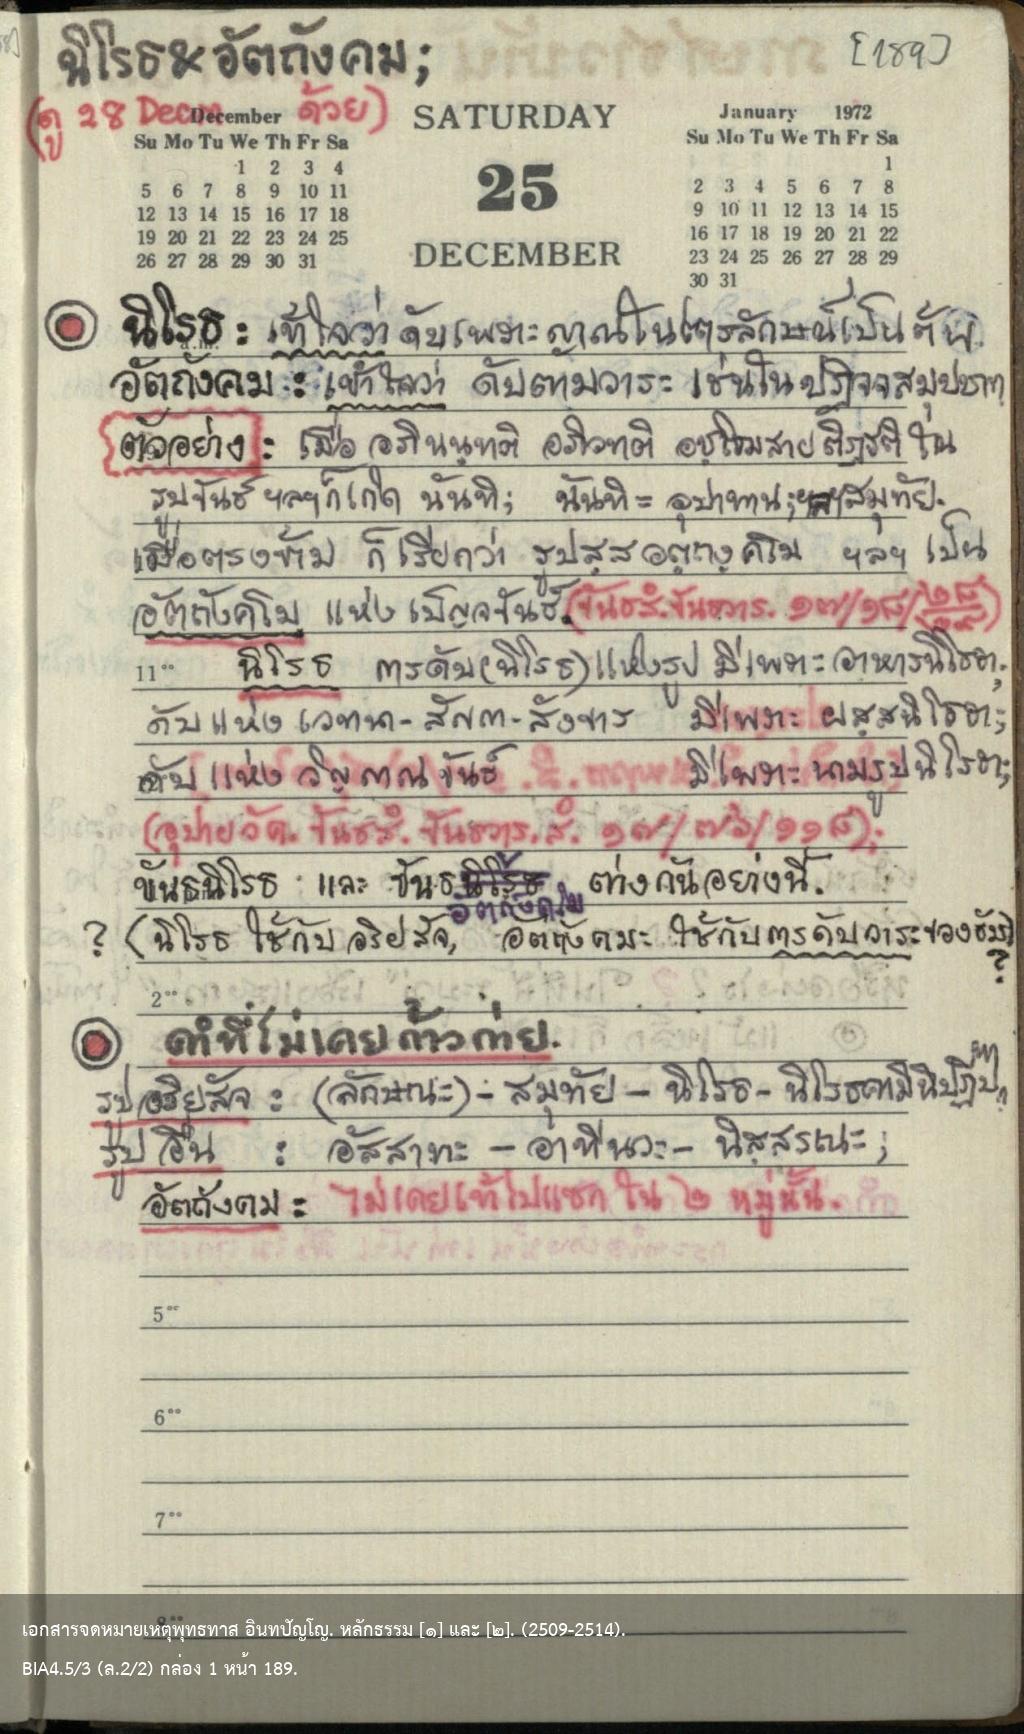 นิโรธ & อัตถังคม;
[189]
(ดู 28 Decem ด้วย)
December
Su Mo Tu We Th Fr Sa
1 2 3 4
5 6 7 8 9 10 11
12 13 14 15 16 17 18
19 20 21 22 23 24 25
26 27 28 29 30 31
SATURDAY
25
DECEMBER
January 1972
Su Mo Tu We Th Fr Sa
1
2 3 4 5 6 7 8
9 10 11 12 13 14 15
16 17 18 19 20 21 22
23 24 25 26 27 28 29
30 31
นิโรธ : เข้าใจว่า ดับเพราะญาณในไตรลักษณ์เป็นต้น.
อัตถังคม : เข้าใจว่า ดับตามวาระ เช่นในปฏิจจสมุปบาท
ตัวอย่าง : เมื่อ อภินนฺทติ อภิวทติ อชฺโฌสาย ติฏฺฐติ ใน
รูปขันธ์ ฯลฯ ก็เกิด นันทิ; นันทิ = อุปาทาน; ฯลฯ สมุทัย.
เมื่อตรงข้าม ก็เรียกว่า รูปสฺส อตฺถงฺคโม ฯลฯ เป็น
อัตถังคโม แห่งเบ็ญจขันธ์. (ขันธสํ. ขันธวาร. ๑๗/๑๘/
11°° นิโรธ การดับ(นิโรธ)แห่งรูป มีเพราะ อาหารนิโรธา;
ดับแห่ง เวทนา - สัญญา - สังขาร มีเพราะ ผสฺสนิโรธา;
ดับแห่ง วิญญาณขันธ์ มีเพราะ นามรูปนิโรธา;
(อุปายวัค. ขันธสํ. ขันธวาร. สํ. ๑๗/๗๖/๑๑๘);
ขันธนิโรธ และ ขันธ อัตถังคโม ต่างกันอย่างนี้.
? (นิโรธ ใช้กับ อริยสัจ, อัตถังคมะ ใช้กับการดับวาระของธัม)?
2°°
คำที่ไม่เคยก้าวก่าย.
รูปอริยสัจ : (ลักษณะ) - สมุทัย - นิโรธ - นิโรธคามินีปฏิปทา
รูปอื่น : อัสสาทะ - อาทีนวะ - นิสฺสรณะ;
อัตถังคม : ไม่เคยเข้าไปแซกใน ๒ หมู่นั้น.
5°°
6°°
7°°
เอกสารจดหมายเหตุพุทธทาส อินทปัญโญ. หลักธรรม [๑] และ [๒]. (2509-2514).
BIA4.5/3 (ล.2/2) กล่อง 1 หน้า 189.